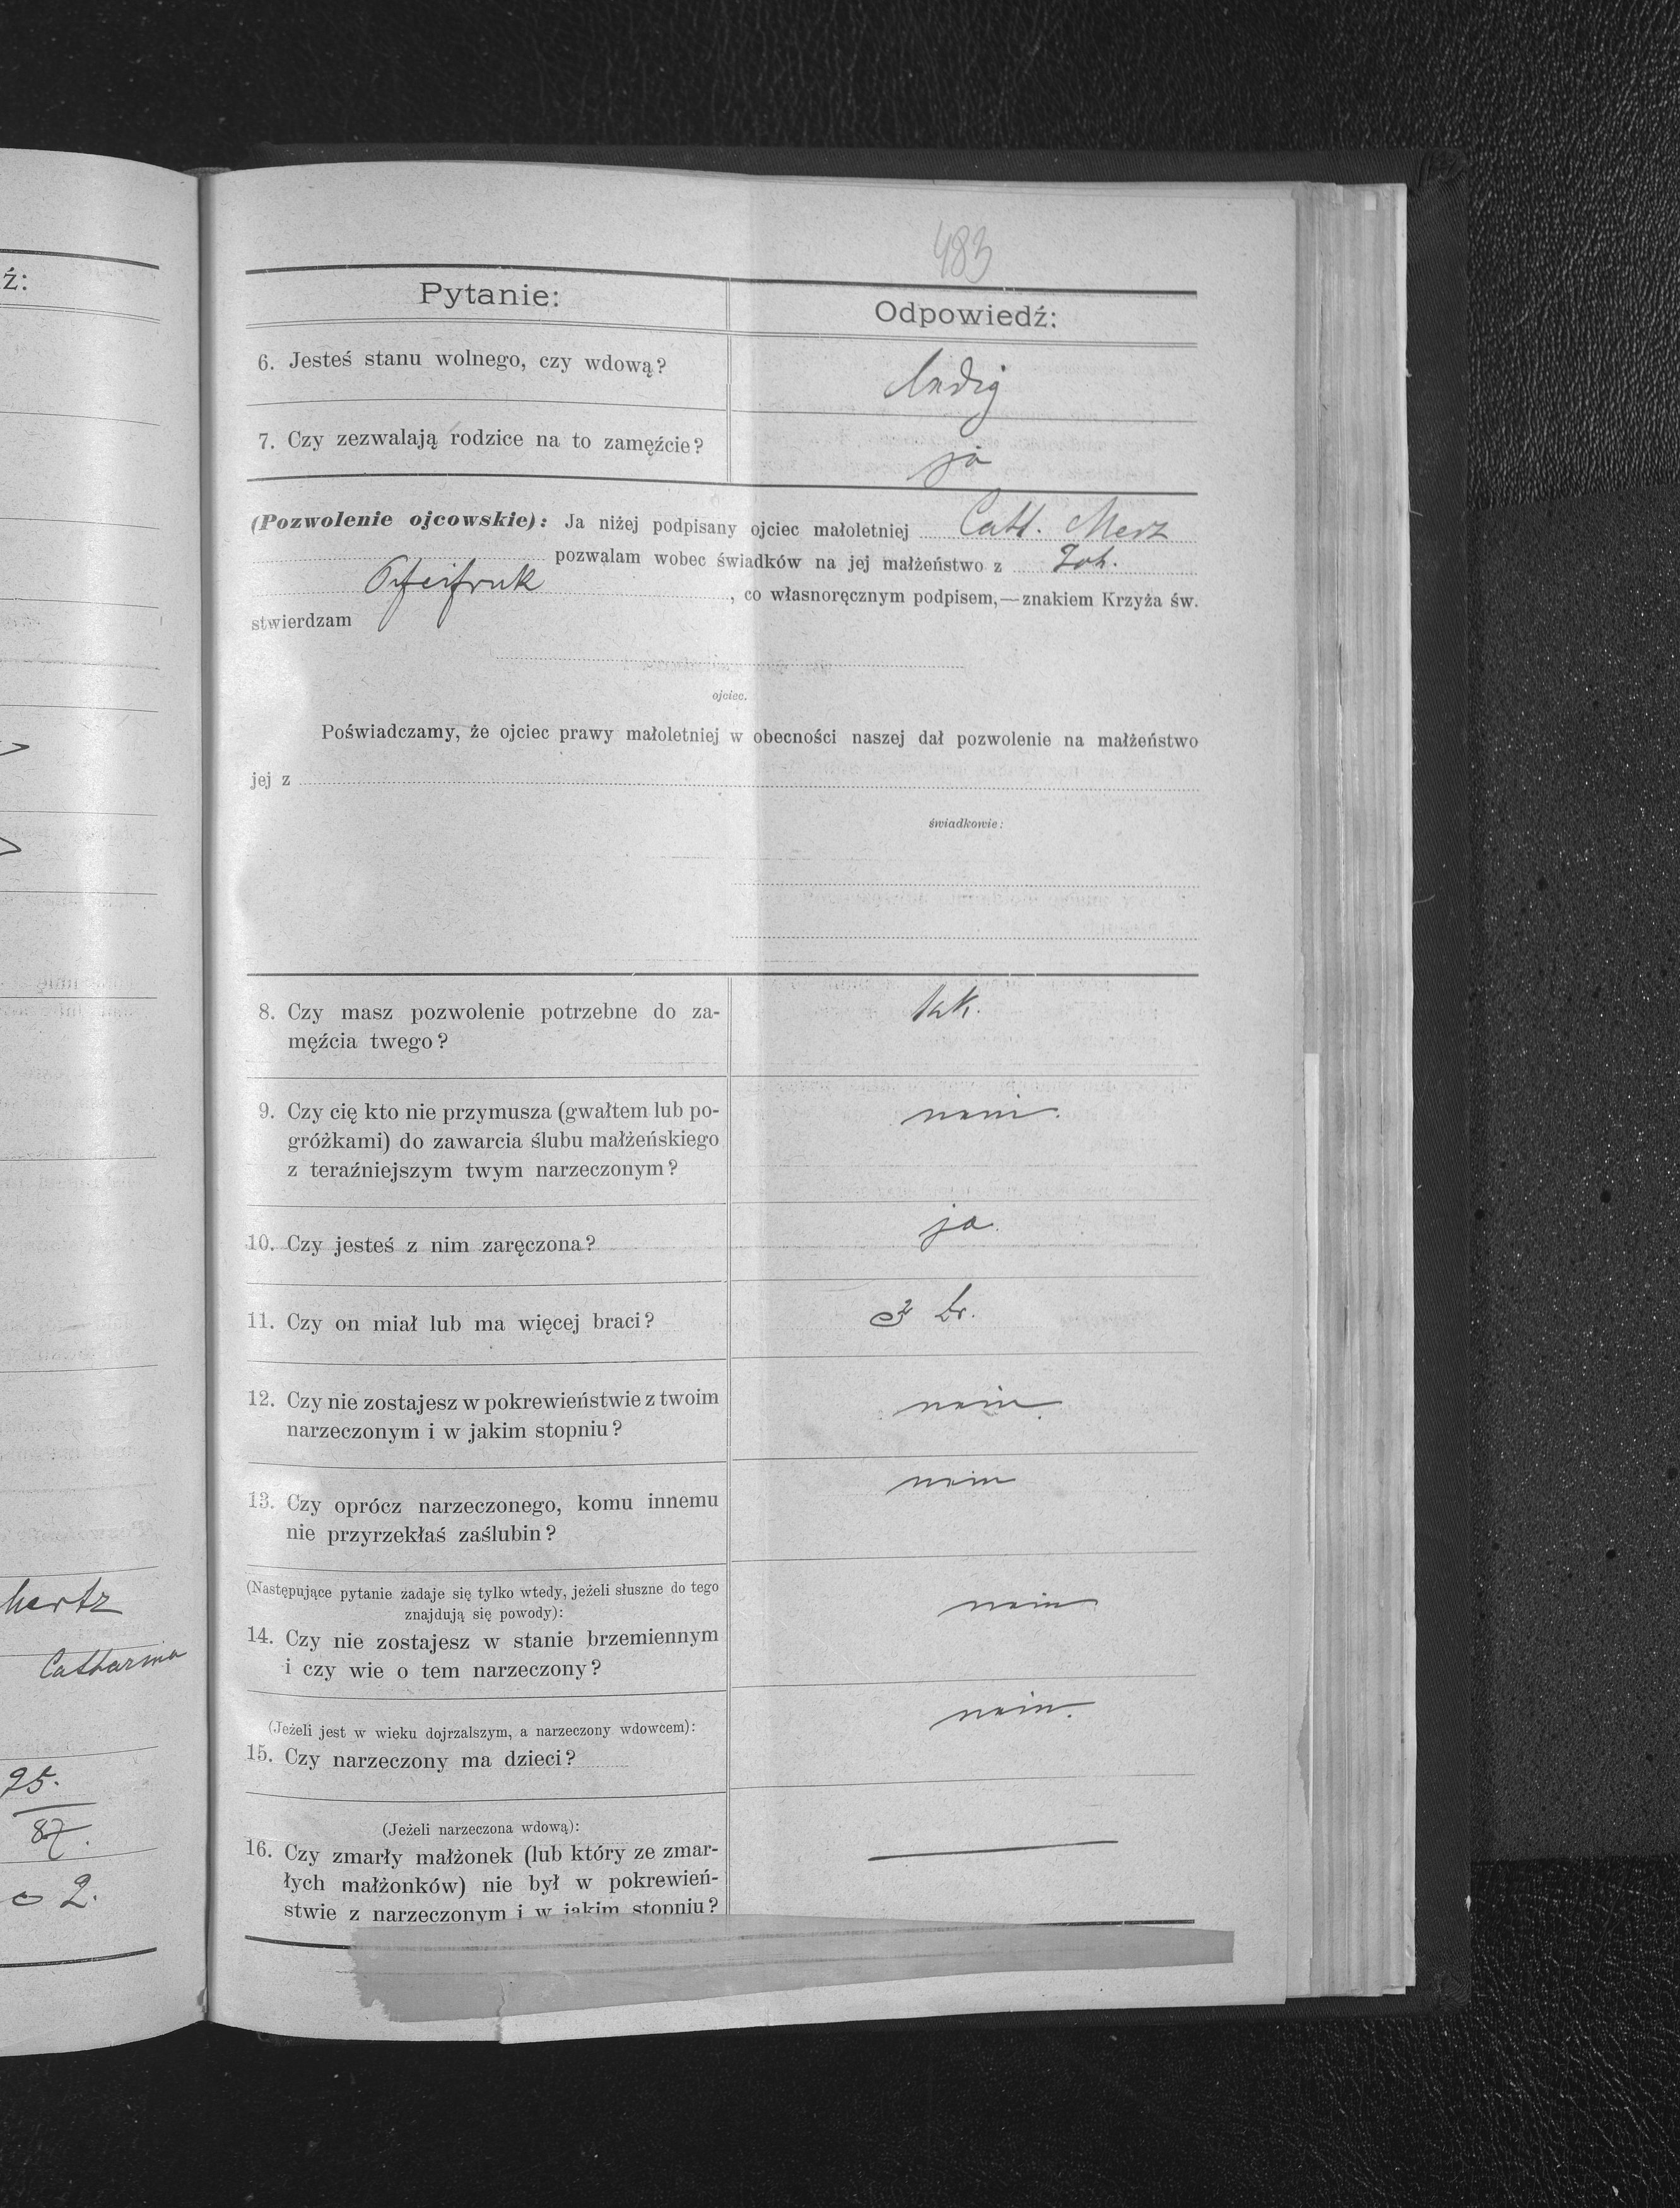 ź:
hertz
Catharina
25.
87.
2.
483
Pytanie:
Odpowiedź:
6. Jesteś stanu wolnego, czy wdową?
ledig
7. Czy zezwalają rodzice na to zamęźcie?
ja
(Pozwolenie ojcowskie): Ja niżej podpisany ojciec małoletniej Cath. Merz
pozwalam wobec świadków na jej małżeństwo z Joh.
, co własnoręcznym podpisem,—znakiem Krzyża św.
stwierdzam
ojciec.
Poświadczamy, że ojciec prawy małoletniej w obecności naszej dał pozwolenie na małżeństwo
jej z
świadkowie:
8. Czy masz pozwolenie potrzebne do za-
męźcia twego?
tak.
9. Czy cię kto nie przymusza (gwałtem lub po-
gróżkami) do zawarcia ślubu małżeńskiego
z teraźniejszym twym narzeczonym?
nein.
10. Czy jesteś z nim zaręczona?
ja.
11. Czy on miał lub ma więcej braci?
br.
12. Czy nie zostajesz w pokrewieństwie z twoim
narzeczonym i w jakim stopniu?
nein.
13. Czy oprócz narzeczonego, komu innemu
nie przyrzekłaś zaślubin?
nein
(Następujące pytanie zadaje się tylko wtedy, jeżeli słuszne do tego
znajdują się powody):
14. Czy nie zostajesz w stanie brzemiennym
i czy wie o tem narzeczony?
nein
(Jeżeli jest w wieku dojrzalszym, a narzeczony wdowcem):
15. Czy narzeczony ma dzieci?
nein.
(Jeżeli narzeczona wdową):
16. Czy zmarły małżonek (lub który ze zmar-
łych małżonków) nie był w pokrewień-
stwie z narzeczonym i w jakim stopniu?